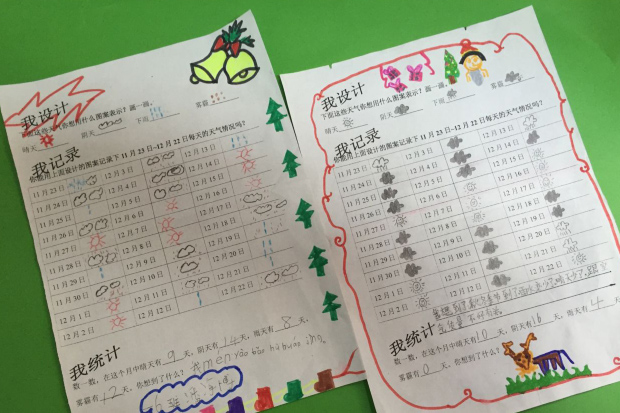 我设计
下面这些天气你想用什么图案表示？画一画。
晴天
阴天
下雨
雾霾
我记录
你想用上面设计的图案记录下 11 月 23 日-12 月 22 日每天的天气情况吗？
11 月 23 日 12 月 3 日 12 月 13 日
11 月 24 日 12 月 4 日 12 月 14 日
11 月 25 日 12 月 5 日 12 月 15 日
11 月 26 日 12 月 6 日 12 月 16 日
11 月 27 日 12 月 7 日 12 月 17 日
11 月 28 日 12 月 8 日 12 月 18 日
11 月 29 日 12 月 9 日 12 月 19 日
11 月 30 日 12 月 10 日 12 月 20 日
12 月 1 日 12 月 11 日 12 月 21 日
12 月 2 日 12 月 12 日 12 月 22 日
我统计
数一数，在这个月中晴天有 9 天，阴天有 14 天，雨天有 8 天，
雾霾有 2 天，你想到了什么？
我设计
下面这些天气你想用什么图案表示？画一画。
晴天
阴天
下雨
雾霾
我记录
你想用上面设计的图案记录下 11 月 23 日-12 月 22 日每天的天气情况吗？
11 月 23 日 12 月 3 日 12 月 13 日
11 月 24 日 12 月 4 日 12 月 14 日
11 月 25 日 12 月 5 日 12 月 15 日
11 月 26 日 12 月 6 日 12 月 16 日
11 月 27 日 12 月 7 日 12 月 17 日
11 月 28 日 12 月 8 日 12 月 18 日
11 月 29 日 12 月 9 日 12 月 19 日
11 月 30 日 12 月 10 日 12 月 20 日
12 月 1 日 12 月 11 日 12 月 21 日
12 月 2 日 12 月 12 日 12 月 22 日
我统计
数一数，在这个月中晴天有 10 天，阴天有 16 天，雨天有 4 天，
雾霾有 0 天，你想到了什么？